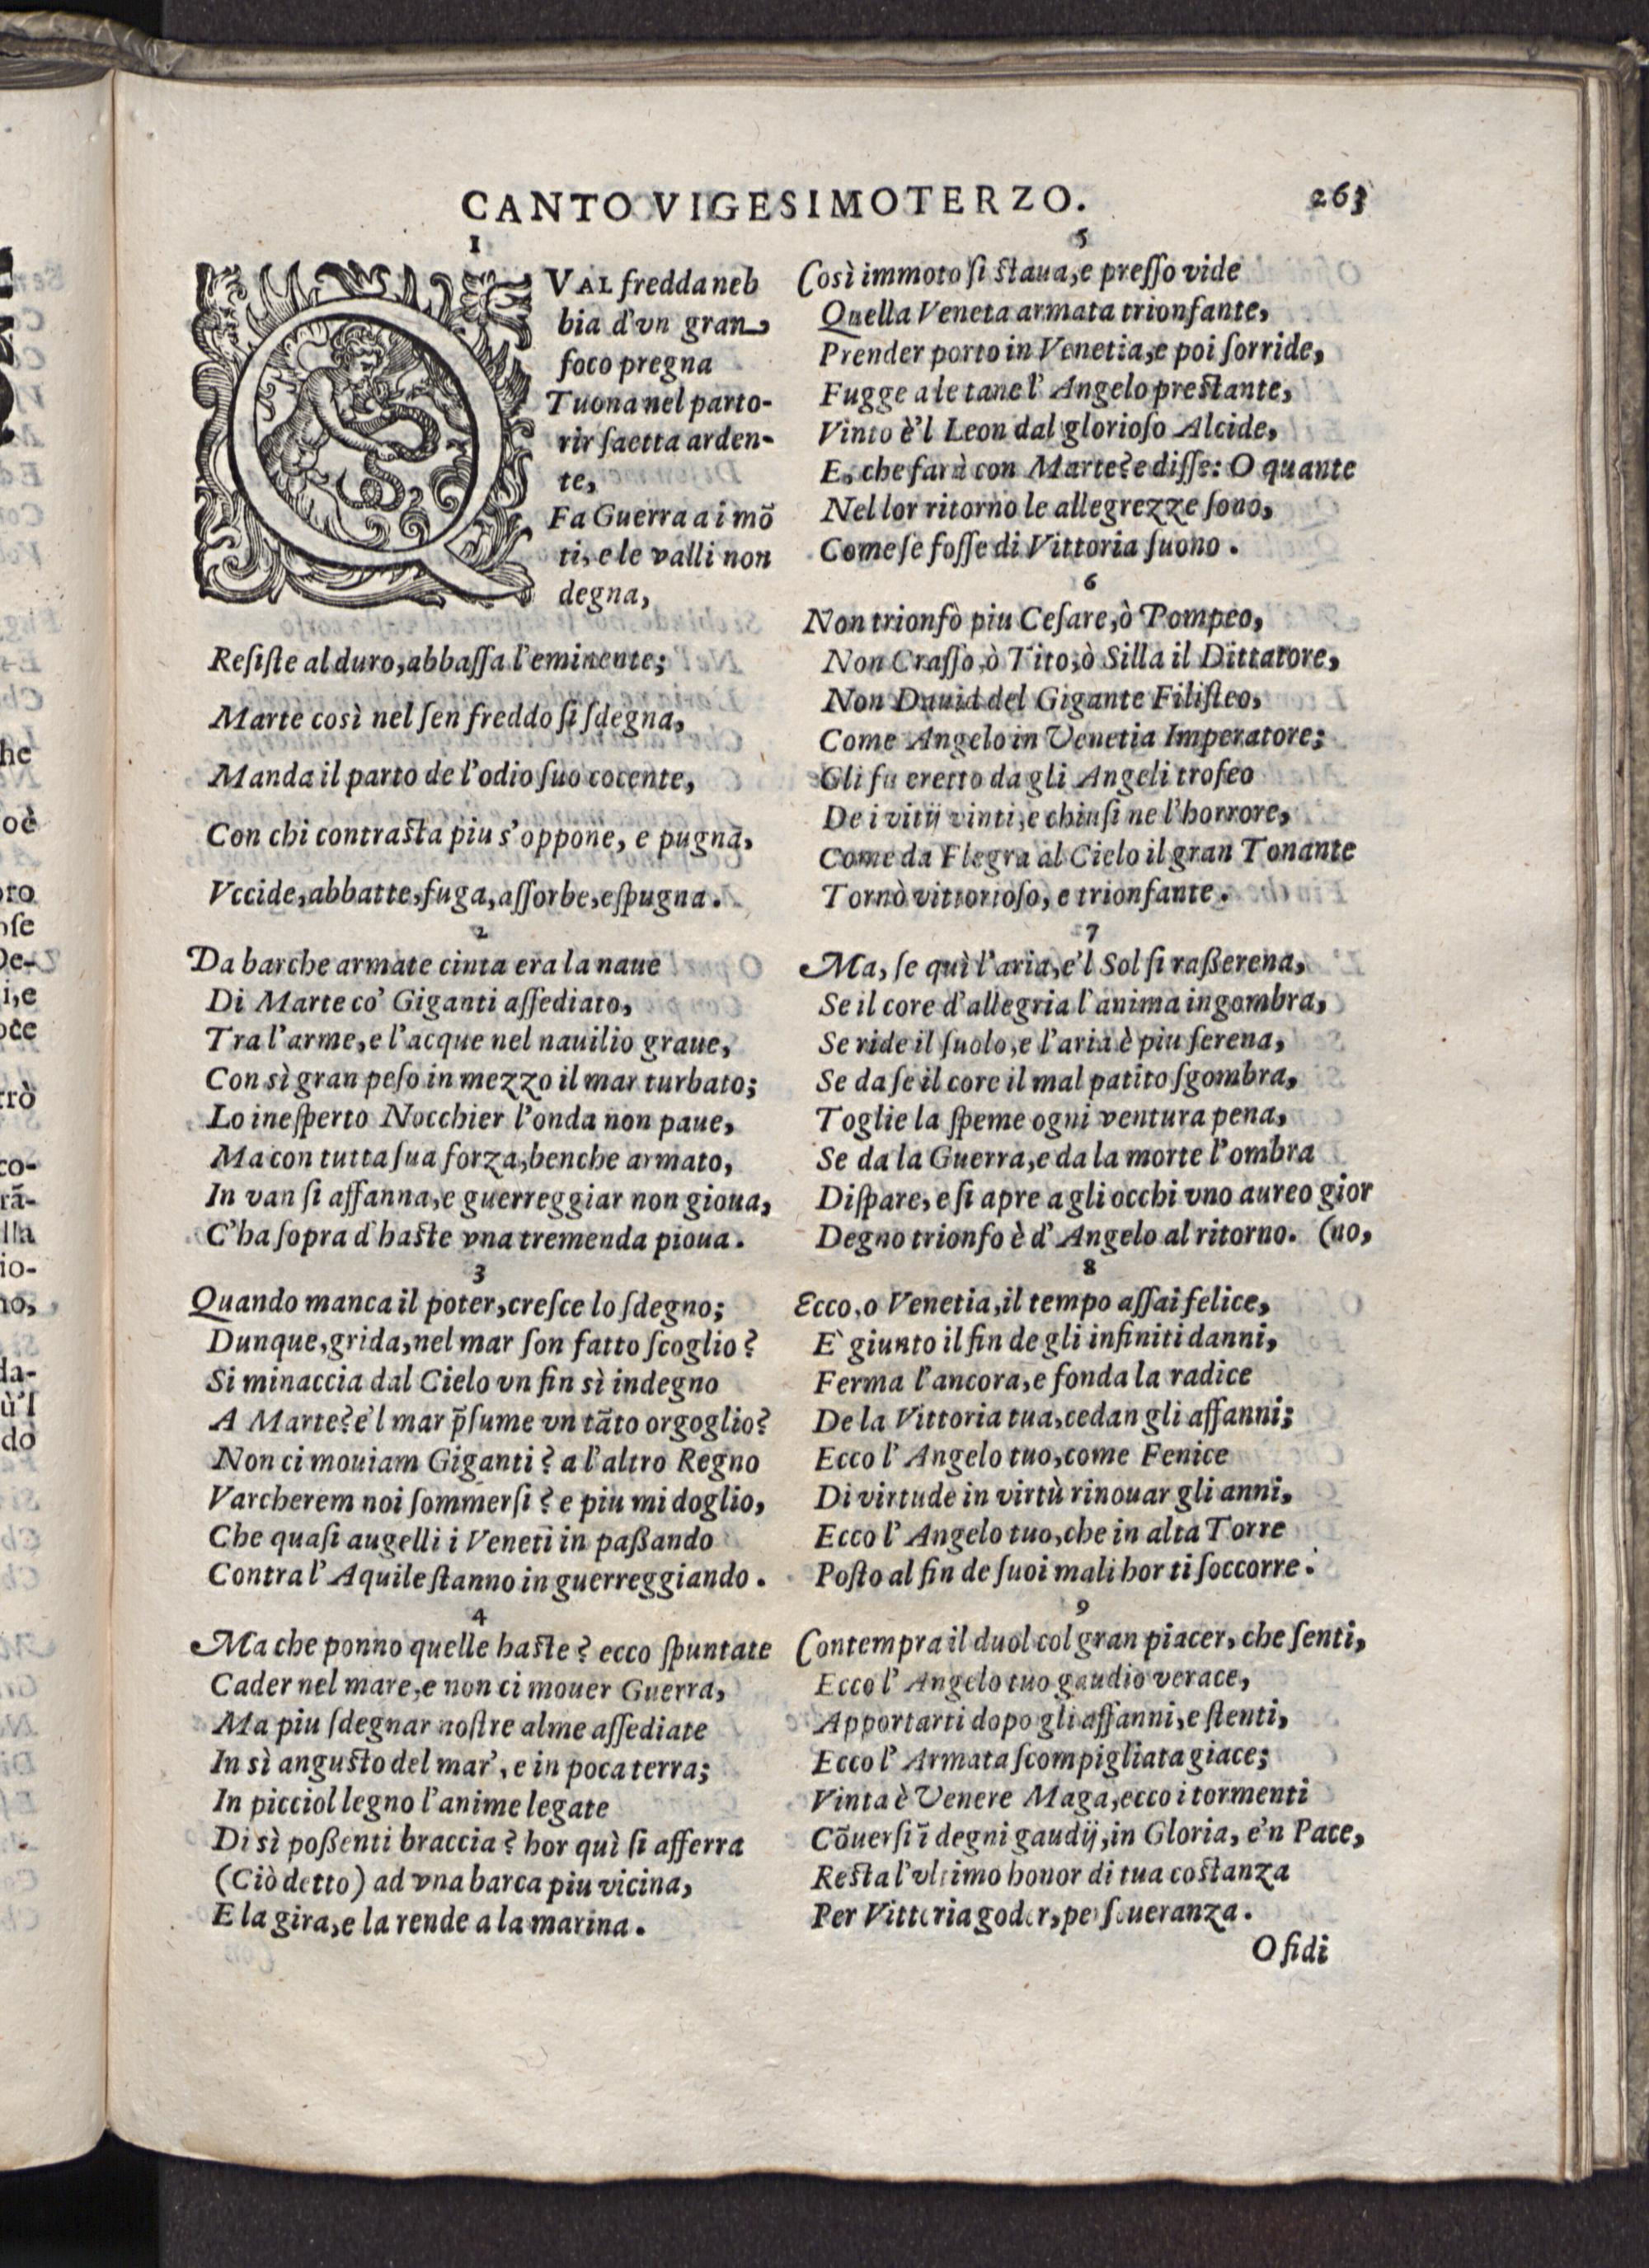 CANTO VIGESIMOTERZO. 263
1
QVAL fredda neb
bia d'vn gran
foco pregna
Tuona nel parto-
rir ſaetta arden-
te,
Fa Guerra a i mõ
ti, e le valli non
degna,
Reſiſte al duro, abbaſſa l'eminente;
Marte così nel ſen freddo ſi ſdegna,
Manda il parto de l'odio ſuo cocente,
Con chi contraſta piu s'oppone, e pugna,
Vccide, abbatte, fuga, aſſorbe, eſpugna.
2
Da barche armate cinta era la naue
Di Marte co' Giganti aſſediato,
Tra l'arme, e l'acque nel nauilio graue,
Con sì gran peſo in mezzo il mar turbato;
Lo ineſperto Nocchier l'onda non paue,
Ma con tutta ſua forza, benche armato,
In van ſi affanna, e guerreggiar non gioua,
C'ha ſopra d'haſte vna tremenda pioua.
3
Quando manca il poter, creſce lo ſdegno;
Dunque, grida, nel mar ſon fatto ſcoglio?
Si minaccia dal Cielo vn fin sì indegno
A Marte? e'l mar p̃ſume vn tãto orgoglio?
Non ci mouiam Giganti? a l'altro Regno
Varcherem noi ſommerſi? e piu mi doglio,
Che quaſi augelli i Veneti in paßando
Contra l'Aquile ſtanno in guerreggiando.
4
Ma che ponno quelle haſte? ecco ſpuntate
Cader nel mare, e non ci mouer Guerra,
Ma piu ſdegnar noſtre alme aſſediate
In sì anguſto del mar', e in poca terra;
In picciol legno l'anime legate
Di sì poßenti braccia? hor quì ſi afferra
(Ciò detto) ad vna barca piu vicina,
E la gira, e la rende a la marina.
5
Così immoto ſi ſtaua, e preſſo vide
Quella Veneta armata trionfante,
Prender porto in Venetia, e poi ſorride,
Fugge a le tane l'Angelo preſtante,
Vinto è'l Leon dal glorioſo Alcide,
E, che farà con Marte? e diſſe: O quante
Nel lor ritorno le allegrezze ſono,
Come ſe foſſe di Vittoria ſuono.
6
Non trionfò piu Ceſare, ò Pompeo,
Non Craſſo, ò Tito, ò Silla il Dittatore,
Non Dauid del Gigante Filiſteo,
Come Angelo in Venetia Imperatore;
Gli fu eretto da gli Angeli trofeo
De i vitij vinti, e chiuſi ne l'horrore,
Come da Flegra al Cielo il gran Tonante
Tornò vittorioſo, e trionfante.
7
Ma, ſe quì l'aria, e'l Sol ſi raßerena,
Se il core d'allegria l'anima ingombra,
Se ride il ſuolo, e l'aria è piu ſerena,
Se da ſe il core il mal patito ſgombra,
Toglie la ſpeme ogni ventura pena,
Se da la Guerra, e da la morte l'ombra
Diſpare, e ſi apre a gli occhi vno aureo gior
Degno trionfo è d'Angelo al ritorno. (no,
8
Ecco, o Venetia, il tempo aſſai felice,
E' giunto il fin de gli infiniti danni,
Ferma l'ancora, e fonda la radice
De la Vittoria tua, cedan gli affanni;
Ecco l'Angelo tuo, come Fenice
Di virtude in virtù rinouar gli anni,
Ecco l'Angelo tuo, che in alta Torre
Poſto al fin de ſuoi mali hor ti ſoccorre.
9
Contempra il duol col gran piacer, che ſenti,
Ecco l'Angelo tuo gaudio verace,
Apportarti dopo gli affanni, e ſtenti,
Ecco l'Armata ſcompigliata giace;
Vinta è Venere Maga, ecco i tormenti
Cõuerſi ĩ degni gaudij, in Gloria, e'n Pace,
Reſta l'vltimo honor di tua coſtanza
Per Vittoria goder, perſeueranza.
O fidi